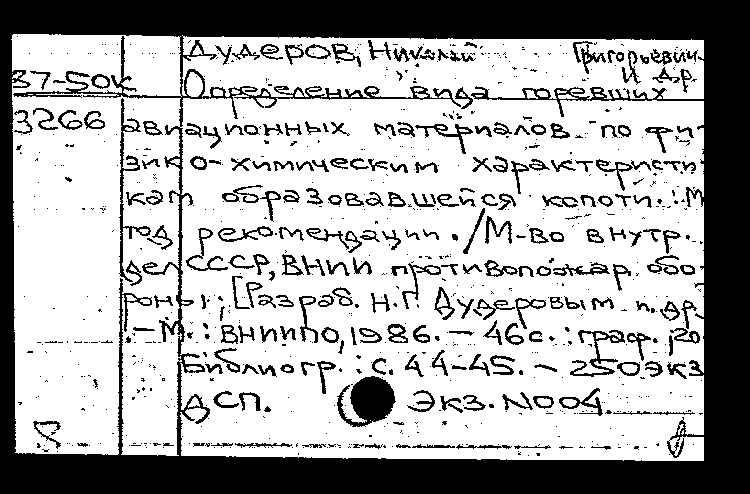 Дудеров, Николай Григорьевич
и др.
37-50к Определение вида горевших
3266 авиационных материалов по фи-
зико-химическим характеристи-
кам образовавшейся копоти. : М
тод. рекомендации. / М-во внутр.
дел СССР, ВНИИ противопожар. обо-
роны; [Разраб. Н.Г. Дудеровым и др
. — М. : ВНИИПО, 1986. — 46с. : граф. ; 20
Библиогр. : с. 44-45. — 250экз
ДСП. Экз. N004.
8